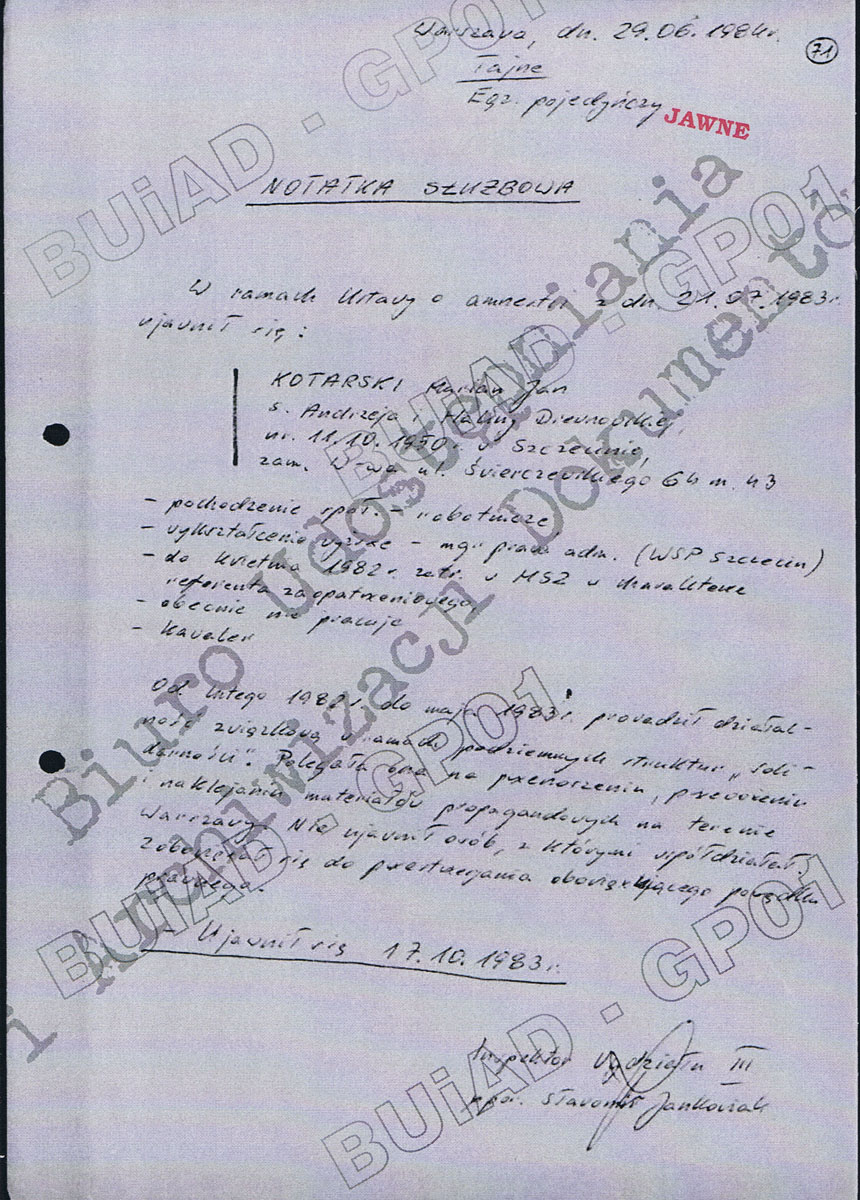 Warszawa, dn. 29.06.1984r.
71
Tajne
Egz. pojedyńczy
JAWNE
NOTATKA SŁUŻBOWA
W ramach Ustawy o amnestii z dn. 21.07.1983r.
ujawnił się:
KOTARSKI Marian Jan
s. Andrzeja i Haliny Drewnowskiej,
ur. 11.10.1950r. w Szczecinie,
zam. W-wa ul. Świerczewskiego 64 m. 43
- pochodzenie społ. - robotnicze
- wykształcenie wyższe - mgr praw adm. (WSP Szczecin)
- do kwietnia 1982r. zatr. w MSZ w charakterze
referenta zaopatrzeniowego
- obecnie nie pracuje
- kawaler
Od lutego 1982r. do maja 1983r. prowadził działal-
ność związkową w ramach podziemnych struktur „Soli-
darności". Polegała ona na przenoszeniu, przewożeniu
i naklejaniu materiałów propagandowych na terenie
Warszawy. Nie ujawnił osób, z którymi współdziałał.
Zobowiązał się do przestrzegania obowiązującego porządku
prawnego.
- Ujawnił się 17.10.1983r.
Inspektor Wydziału III
ppor. Sławomir Jankowiak
BUiAD - GP01
BUiAD - GP01
BUiAD - GP01
BUiAD - GP01
BUiAD - GP01
Biuro Udostępniania
i Archiwizacji Dokumentó